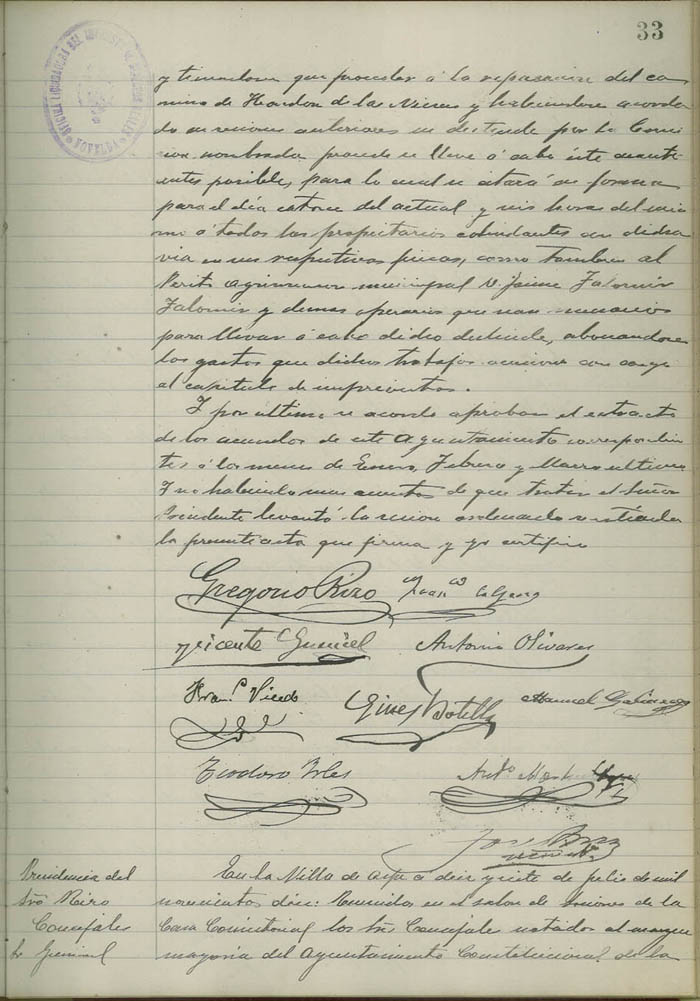 33
OFICINA LIQUIDADORA DEL IMPUESTO DE DERECHOS REALES
NOVELDA
y teniendose que proceder á la reparacion del ca-
mino de Hondon de las Nieves y habiendose acorda-
do en sesiones anteriores su deslinde por la Comi-
sion nombrada procede se lleve á cabo este cuanto
antes posible, para lo cual se citará en forma
para el dia catorce del actual y seis horas del mis
mo á todos los propietarios colindantes con dicha
via en sus respectivas fincas, como tambien al
Perito agrimensor municipal D. Jaime Jalomir
Jalomir y demas operarios que sean necesarios
para llevar á cabo dicho deslinde, abonandose
los gastos que dichos trabajos ocasionen con cargo
al capitulo de imprevistos.
Y por ultimo se acordo aprobar el extracto
de los acuerdos de este Ayuntamiento correspondien
tes á los meses de Enero, Febrero y Marzo ultimos
Y no habiendo mas asuntos de que tratar el Señor
Presidente levantó la sesion ordenando se estienda
la presente acta que firma y yo certifico
Gregorio Rizo
Vicente Gumiel
Antonio Olivares
Fran.co
Gines Botella
Manuel
Teodoro
Ant.o
José
Presidencia del
Sr. Rizo
Concejales
Sr Gumiel
En la Villa de Aspe a diez y siete de Julio de mil
novecientos diez: Reunidos en el salon de sesiones de la
Casa Consistorial los Sres Concejales notados al margen
mayoria del Ayuntamiento Constitucional de la